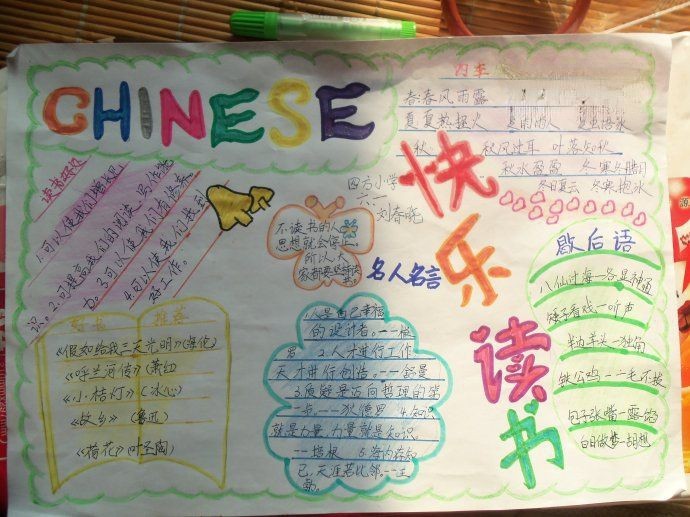 CHINESE
四季
春:春风雨露
夏:夏热握火
秋: 秋风过耳 叶落知秋
秋水盈盈 冬寒抱冰
冬日夏云
四方小学
六.一
刘春晓
快
乐
读
书
读书好处
1.可以使我们增长见
识。2.可提高我们的阅读、写作能
力。3.可以使我们有修养
4.可以使我们找到
好工作。
不读书的人,
思想就会停止。
所以,大
名人名言
歇后语
八仙过海—各显神通
瞎子看戏—听声
铁公鸡—一毛不拔
包子张嘴—露馅
白日做梦—胡想
好书 推荐
《假如给我三天光明》(海伦)
《呼兰河传》(萧红)
《小桔灯》(冰心)
《故乡》(鲁迅)
《荷花》(叶圣陶)
1.人是自己幸福
的设计者。--梭
罗 2.人才进行工作,
天才进行创造。--舒曼
3.质疑是迈向哲理的第
一步--狄德罗 4.知识
就是力量,力量就是知识。
--培根 5.海内存知
己,天涯若比邻。--王
勃。